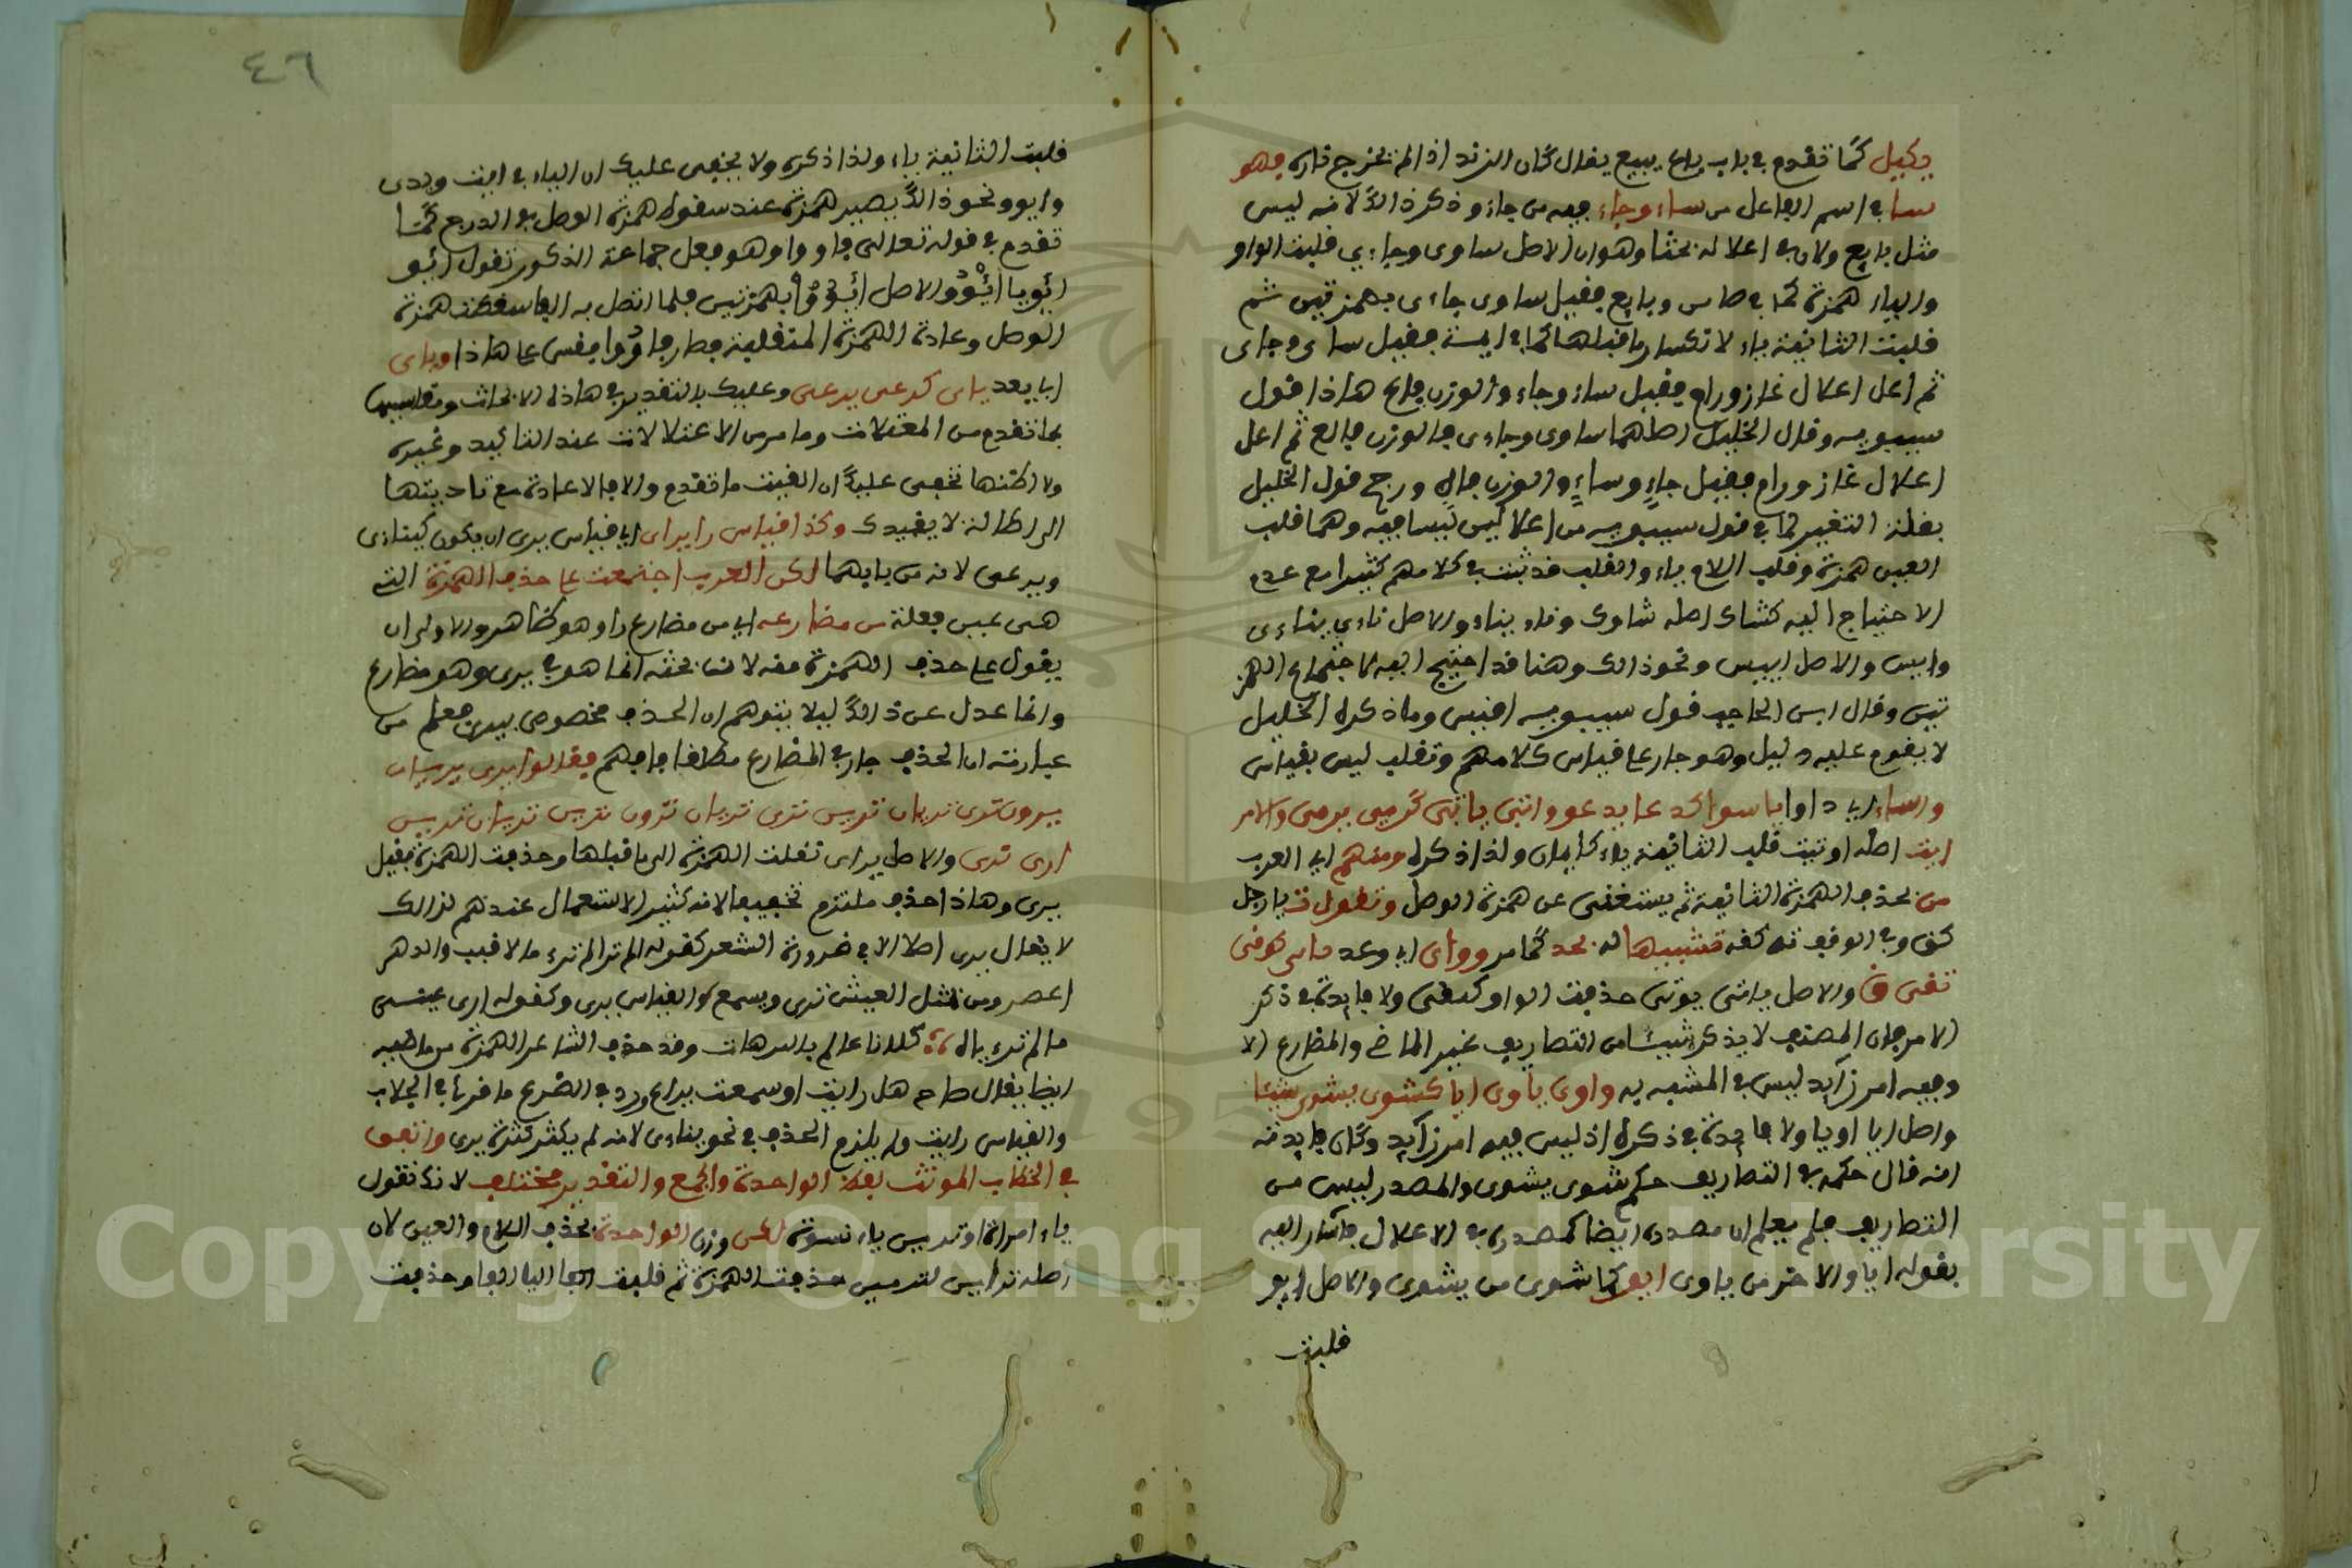 يكيل كما تقدم في باب باع يبيع يقال كان الزند اذا لم تخرج ناره فهو
سا في اسم الفاعل من ساء وجاء فيه من جاء وذكر ذالك لانه ليس
مثل بايع ولان في اعلاله بحثا وهو ان الاصل ساوى وجاءي قلبت الواو
والياء همزة كما في صاين وبايع فقيل ساوى جاءى بهمزتين ثم
قلبت الثانية ياء لانكسار ما قبلها كما في ايمة فقيل ساى وجاى
ثم اعل اعلال غاز ورام فقيل ساء وجاء والوزن فاع هاذا قول
سيبويه وقال الخليل اصلهما ساوى وجاءى فالوزن فالع ثم اعل
اعلال غاز ورام فقيل جاء وساء والوزن فال ورجح قول الخليل
بقلة التغيير لما في قول سيبويه من اعلالين ليسا فيه وهما قلب
العين همزة وقلب اللام ياء والقلب قد ثبت في كلامهم كثيرا مع عدم
الاحتياج اليه كشاك اصله شاوك وناء يناء والاصل ناءي يناءى
وايس والاصل ييس ونحو ذالك وهنا قد احتيج اليه لاجتماع الهمز
تين وقال ابن الحاجب قول سيبويه اقيس وما ذكره الخليل
لا يقوم عليه دليل وهو جار على قياس كلامهم وتقلب ليس بقياس
واساء اي داوا ياسوا كدعا يدعو واتى ياتى كرمى يرمى والامر
ايت اصله اوتيت قلب الثانية ياء كايمان ولذا ذكره ومنهم اي العرب
من بحذف الهمزة الثانية ثم يستغنى عن همزة الوصل وتقول ت يا رجل
كق وفي الوقف ته كقه تشبيها له بخذ كما مر وواى اي وعد ماى كوقى
تقى ق والاصل ياتى يوتى حذفت الواو كيقى ولا فايدة في ذكر
الامر فان المصنف لا يذكر شيئا من التصاريف غير الماضي والمضارع الا
وفيه امر زايد ليس في المشبه به واوى ياوى ايا كشوى يشوى شيئا
واصل ايا اويا ولا فايدة في ذكره اذ ليس فيه امر زايد وكان فايدته
انه قال حكمه في التصاريف حكم شوى يشوى والمصدر ليس من
التصاريف فلم يعلم ان مصدره ايضا كمصدره في الاعلال فاشار اليه
بقوله ايا والامر من ياوى ايو كاشوى من يشوى والاصل ايو
قلبت
٤٦
قلبت الثانية ياء ولذا ذكره ولا يخفى عليك ان الياء في ايت وبدى
وايوو نحو ذالك يصير همزة عند سقوط همزة الوصل في الدرج كما
تقدم في قوله تعالى فاووا وهو فعل جماعة الذكور تقول ايو
ايويا ائوو والاصل ائووا بهمزتين فلما اتصل به الفا سقطت همزة
الوصل وعادة الهمزة المنقلبة فصار فاووا فقس على هاذا وياى
اي يعد ياى كرعى يرعى وعليك بالتقدير في هاذه الابحاث ومقابيسها
بما تقدم من المعتلات وما مر من الاعتلالات عند التاكيد وغيره
ولا اظنها تخفى عليك ان الفيت ما تقدم والا فالاعادة مع تاديتها
الى اطالة لا يفيدك وكذا قياس راى يراى اي قياس يرى ان يكون كيناءى
ويرعى لانه من بابهما لكن العرب اجتمعت على حذف الهمزة التي
هى عين فعله من مضارعه اي من مضارع راو هو كظاهر والاولى ان
يقول على حذف الهمزة منه لانه بحثه انما هو في يرى وهو مضارع
وانما عدل عن ذالك ليلا يتوهم ان الحذف مخصوص بيرى فعلم من
عبارته ان الحذف جار في المضارع مطلقا فافهم فقالوا يرى يريان
يرون ترى تريان ترين ترى تريان ترون ترين تريان ترين
ارى نرى والاصل يراى نقلت الهمزة الى ما قبلها وحذفت الهمزة فقيل
يرى وهاذا حذف ملتزم تخفيفا لانه كثير الاستعمال عندهم لذالك
لا يقال يرى اصلا الا في ضرورة الشعر كقوله الم تر الم ترء ما لاقيت والدهر
اعصر ومن يتمل العيش يرى ويسمع والقياس يرى وكقوله ارى عينى
ما لم ترءياه كلانا عالم بالترهات وقد حذف الشاعر الهمزة من ماضيه
ايضا يقال صاح هل رايت او سمعت براع رد في الضرع ما قرى في الحلاب
والقياس رايت ولم يلزم الحذف في نحو يناءى لانه لم يكثر كثرة يرى واتفق
في الخطاب المونث لفظ الواحدة والجمع والتقدير مختلف لانك تقول
يا امراة او ترين يا نسوة لكن وزن الواحدة بحذف اللام والعين لان
اصله ترايين لترمين حذفت الهمزة ثم قلبت الفا اليا الفا وحذفت